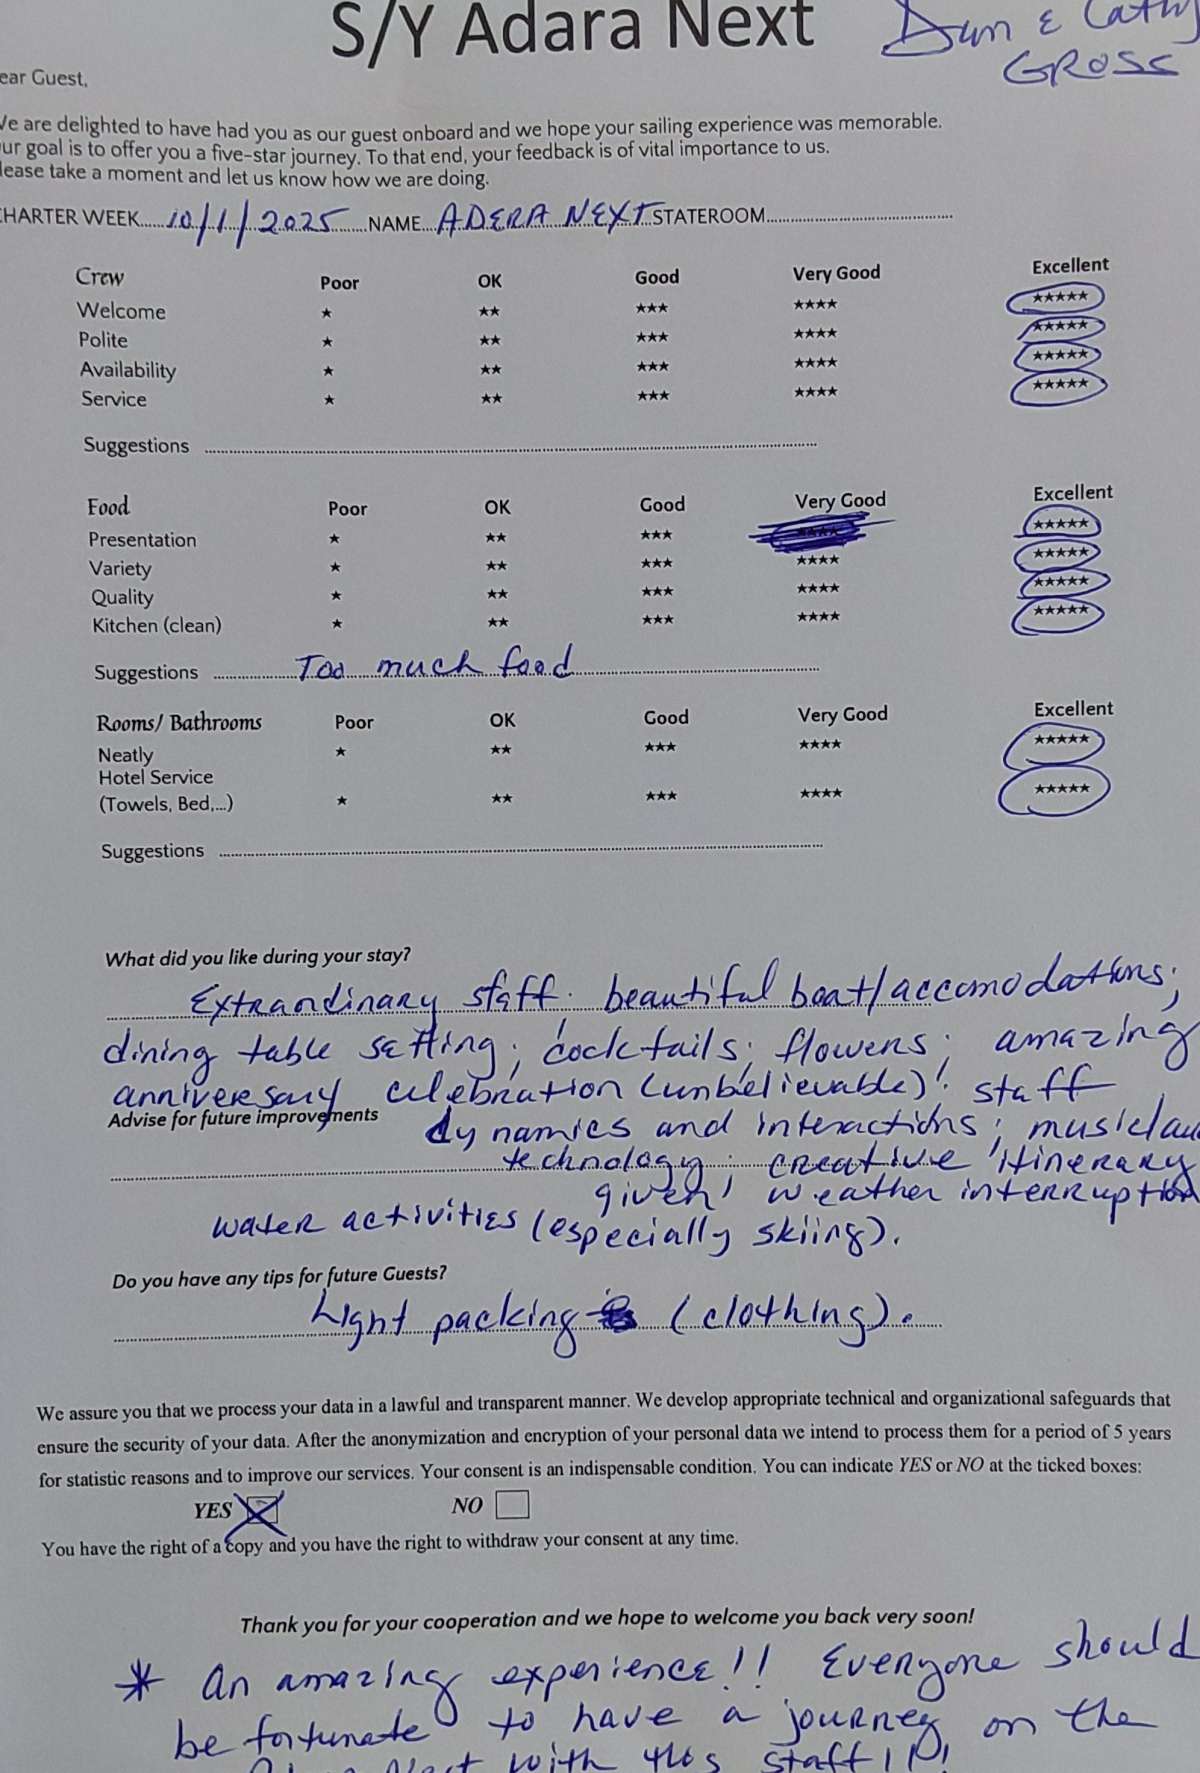 S/Y Adara Next
Dan & Cathy
GROSS
ear Guest,
We are delighted to have had you as our guest onboard and we hope your sailing experience was memorable.
ur goal is to offer you a five-star journey. To that end, your feedback is of vital importance to us.
lease take a moment and let us know how we are doing.
CHARTER WEEK 10/1/2025 NAME ADERA NEXT STATEROOM
Crew Poor OK Good Very Good Excellent
Welcome ★ ★★ ★★★ ★★★★ ★★★★★
Polite ★ ★★ ★★★ ★★★★ ★★★★★
Availability ★ ★★ ★★★ ★★★★ ★★★★★
Service ★ ★★ ★★★ ★★★★ ★★★★★
Suggestions
Food Poor OK Good Very Good Excellent
Presentation ★ ★★ ★★★ ★★★★ ★★★★★
Variety ★ ★★ ★★★ ★★★★ ★★★★★
Quality ★ ★★ ★★★ ★★★★ ★★★★★
Kitchen (clean) ★ ★★ ★★★ ★★★★ ★★★★★
Suggestions Too much food
Rooms/ Bathrooms Poor OK Good Very Good Excellent
Neatly ★ ★★ ★★★ ★★★★ ★★★★★
Hotel Service
(Towels, Bed,...) ★ ★★ ★★★ ★★★★ ★★★★★
Suggestions
What did you like during your stay?
Extraordinary staff. beautiful boat/accomodations;
dining table setting; cocktails; flowers; amazing
anniversary celebration (unbelievable)! staff
Advise for future improvements
dynamics and interactions; music/au
technology; creative itinerary
given weather interruption
water activities (especially skiing).
Do you have any tips for future Guests?
Light packing (clothing).
We assure you that we process your data in a lawful and transparent manner. We develop appropriate technical and organizational safeguards that
ensure the security of your data. After the anonymization and encryption of your personal data we intend to process them for a period of 5 years
for statistic reasons and to improve our services. Your consent is an indispensable condition. You can indicate YES or NO at the ticked boxes:
YES NO
You have the right of a copy and you have the right to withdraw your consent at any time.
Thank you for your cooperation and we hope to welcome you back very soon!
* An amazing experience!! Everyone should
be fortunate to have a journey on the
Next with this staff!!!